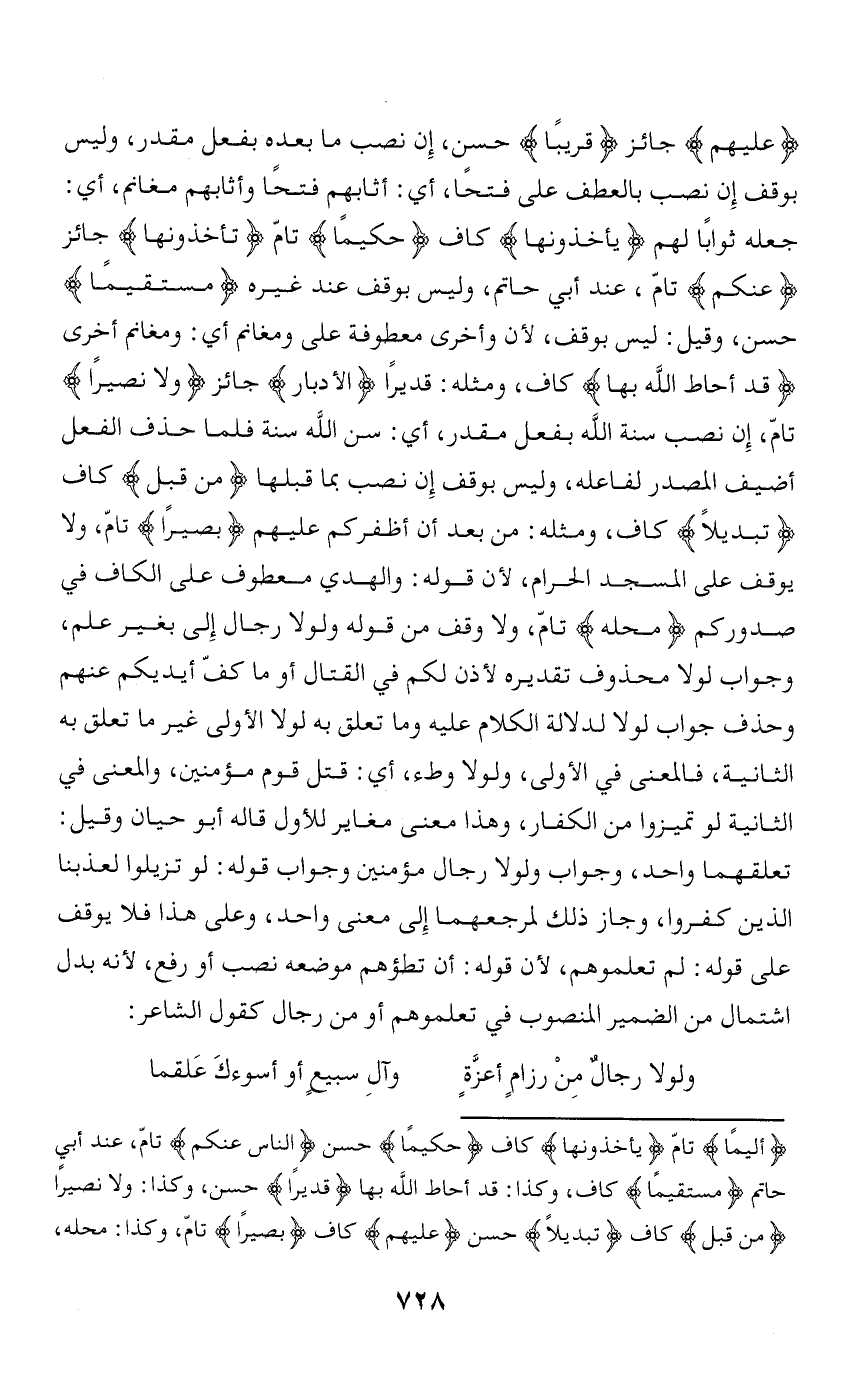 ﴿ عليهم ﴾ جائز ﴿ قريبًا ﴾ حسن، إن نصب ما بعده بفعل مقدر، وليس
بوقف إن نصب بالعطف على فتحًا، أي: أثابهم فتحًا وأثابهم مغانم، أي:
جعله ثوابًا لهم ﴿ يأخذونها ﴾ كاف ﴿ حكيمًا ﴾ تامّ ﴿ تأخذونها ﴾ جائز
﴿ عنكم ﴾ تامّ ، عند أبي حاتم، وليس بوقف عند غيره ﴿ مستقيمًا ﴾
حسن، وقيل: ليس بوقف، لأن وأخرى معطوفة على ومغانم أي: ومغانم أخرى
﴿ قد أحاط اللَّه بها ﴾ كاف، ومثله: قديرًا ﴿ الأدبار ﴾ جائز ﴿ ولا نصيرًا ﴾
تامّ، إن نصب سنة اللَّه بفعل مقدر، أي: سن اللَّه سنة فلما حذف الفعل
أضيف المصدر لفاعله، وليس بوقف إن نصب بما قبلها ﴿ من قبل ﴾ كاف
﴿ تبديلاً ﴾ كاف، ومثله: من بعد أن أظفركم عليهم ﴿ بصيرًا ﴾ تامّ، ولا
يوقف على المسجد الحرام، لأن قوله: والهدي معطوف على الكاف في
صدوركم ﴿ محله ﴾ تامّ، ولا وقف من قوله ولولا رجال إلى بغير علم،
وجواب لولا محذوف تقديره لأذن لكم في القتال أو ما كفّ أيديكم عنهم
وحذف جواب لولا لدلالة الكلام عليه وما تعلق به لولا الأولى غير ما تعلق به
الثانية، فالمعنى في الأولى، ولولا وطء، أي: قتل قوم مؤمنين، والمعنى في
الثانية لو تميزوا من الكفار، وهذا معنى مغاير للأول قاله أبو حيان وقيل:
تعلقهما واحد، وجواب ولولا رجال مؤمنين وجواب قوله: لو تزيلوا لعذبنا
الذين كفروا، وجاز ذلك لمرجعهما إلى معنى واحد، وعلى هذا فلا يوقف
على قوله: لم تعلموهم، لأن قوله: أن تطؤهم موضعه نصب أو رفع، لأنه بدل
اشتمال من الضمير المنصوب في تعلموهم أو من رجال كقول الشاعر:
ولولا رجالٌ مِنْ رزامٍ أعزَّةٍ وآلِ سبيعٍ أو أسوءكَ عَلقما
﴿ أليمًا ﴾ تامّ ﴿ يأخذونها ﴾ كاف ﴿ حكيمًا ﴾ حسن ﴿ الناس عنكم ﴾ تامّ، عند أبي
حاتم ﴿ مستقيمًا ﴾ كاف، وكذا: قد أحاط اللَّه بها ﴿ قديرًا ﴾ حسن، وكذا: ولا نصيرًا
﴿ من قبل ﴾ كاف ﴿ تبديلاً ﴾ حسن ﴿ عليهم ﴾ كاف ﴿ بصيرًا ﴾ تامّ، وكذا: محله،
٧٢٨